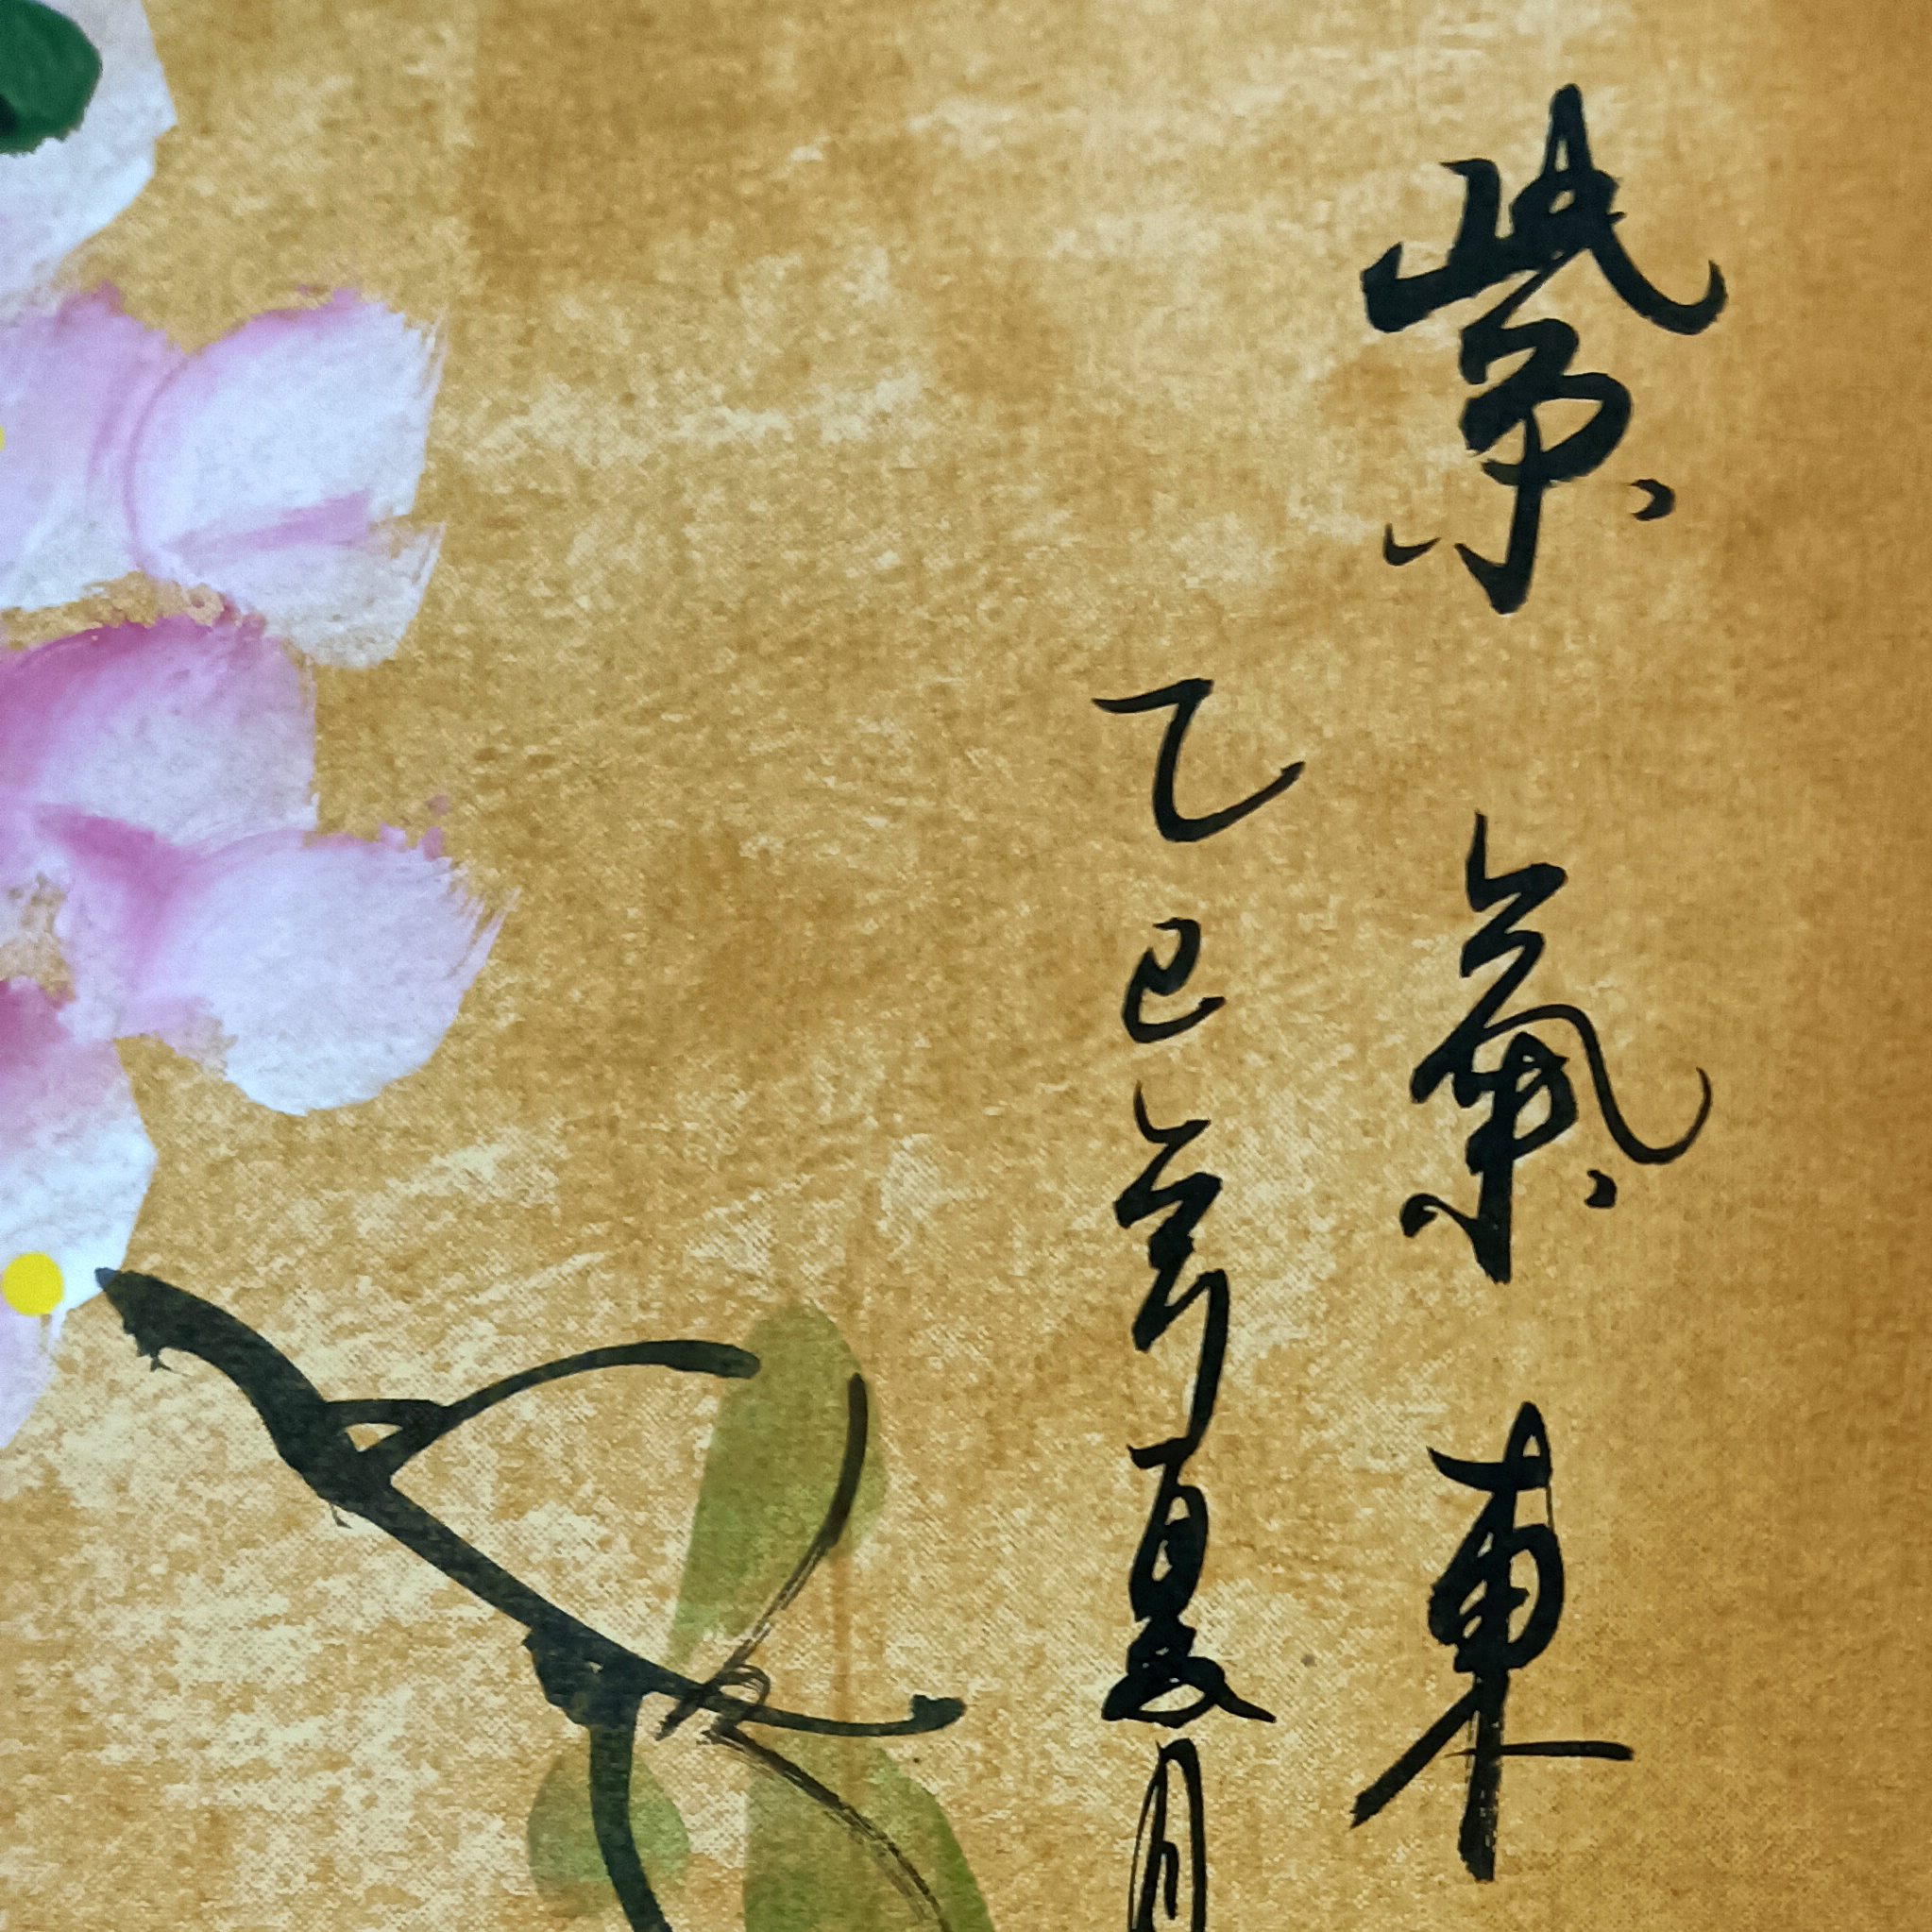 紫氣東
乙巳年夏月